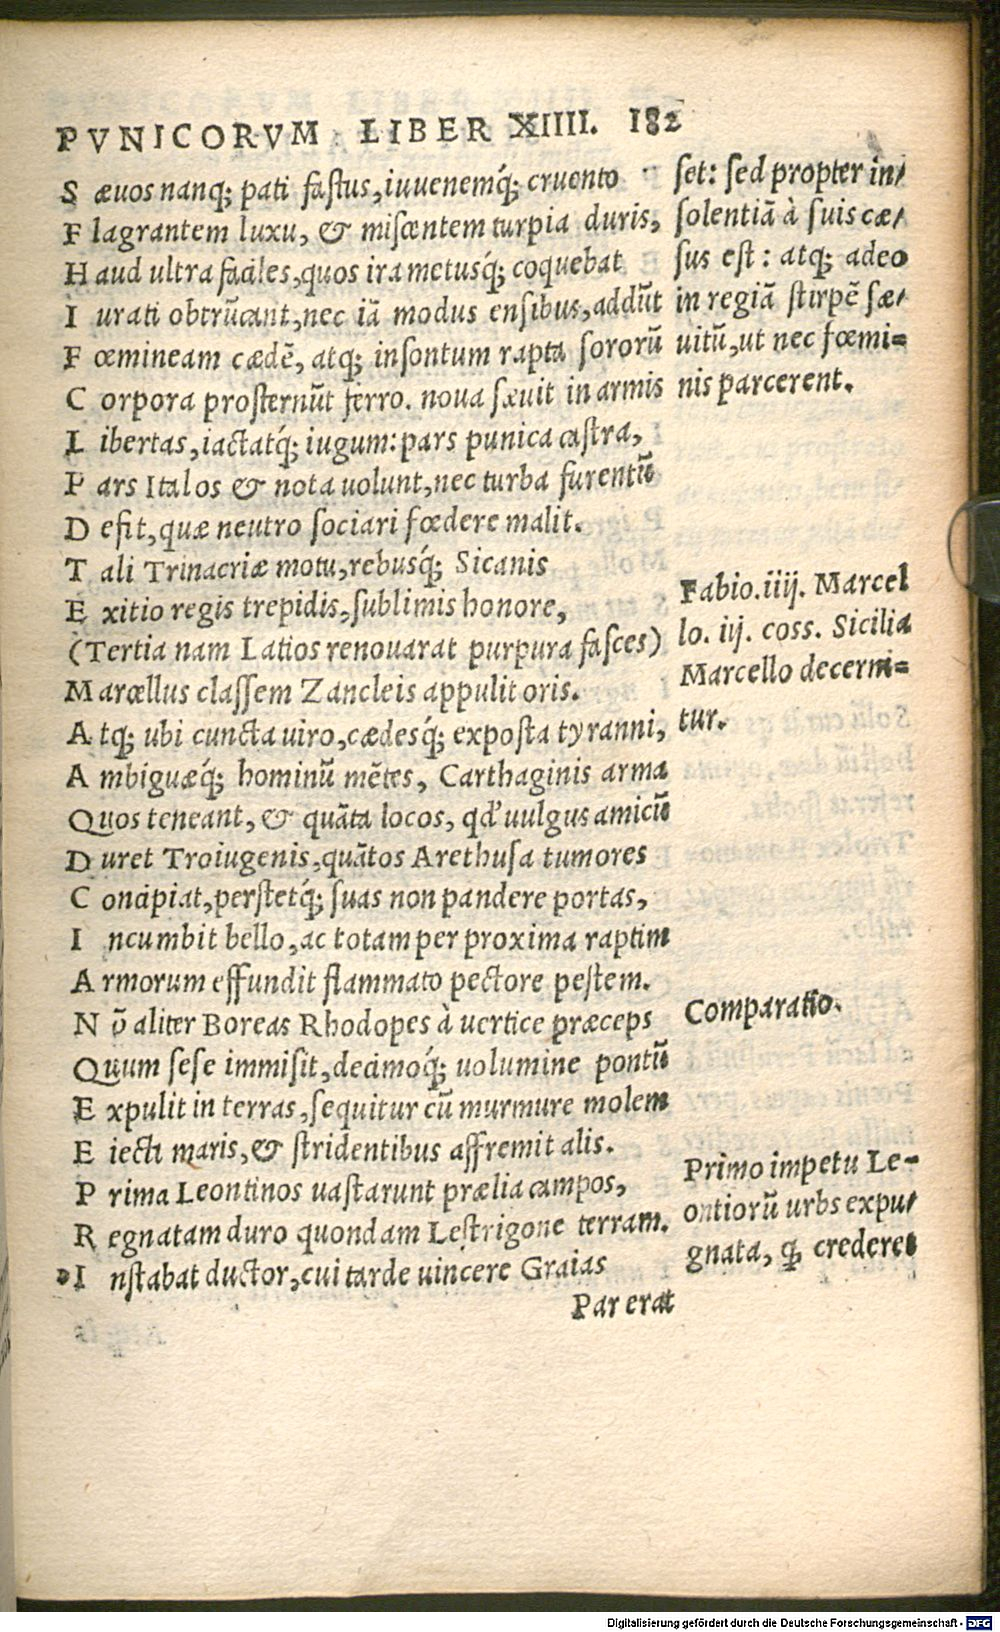 PVNICORVM LIBER XIIII. 182
S æuos nanq; pati fastus, iuuenemq́; cruento
F lagrantem luxu, & miscentem turpia duris,
H aud ultra faciles, quos ira metusq́; coquebat
I urati obtrũcant, nec iã modus ensibus, addũt
F oemineam cædẽ, atq; insontum rapta sororũ
C orpora prosternũt ferro. noua sæuit in armis
L ibertas, iactatq́; iugum: pars punica castra,
P ars Italos & nota uolunt, nec turba furentũ
D efit, quæ neutro sociari foedere malit.
T ali Trinacriæ motu, rebusq́; Sicanis
E xitio regis trepidis, sublimis honore,
(Tertia nam Latios renouarat purpura fasces)
M arcellus classem Zancleis appulit oris.
A tq; ubi cuncta uiro, cædesq́; exposta tyranni,
A mbiguæq́; hominũ mẽtes, Carthaginis arma
Quos teneant, & quãta locos, qd' uulgus amicũ
D uret Troiugenis, quãtos Arethusa tumores
C oncipiat, perstetq́; suas non pandere portas,
I ncumbit bello, ac totam per proxima raptim
A rmorum effundit flammato pectore pestem.
N õ aliter Boreas Rhodopes à uertice præceps
Quum sese immisit, decimoq́; uolumine pontũ
E xpulit in terras, sequitur cũ murmure molem
E iecti maris, & stridentibus affremit alis.
P rima Leontinos uastarunt prælia campos,
R egnatam duro quondam Lestrigone terram.
I nstabat ductor, cui tarde uincere Graias
Par erat
set: sed propter in/
solentiã à suis cæ/
sus est: atq; adeo
in regiã stirpẽ sæ/
uitũ, ut nec foemi=
nis parcerent.
Fabio. iiij. Marcel
lo. iij. coss. Sicilia
Marcello decerni=
tur.
Comparatio.
Primo impetu Le-
ontiorũ urbs expu/
gnata, ꝙ crederet
Digitalisierung gefördert durch die Deutsche Forschungsgemeinschaft - DFG